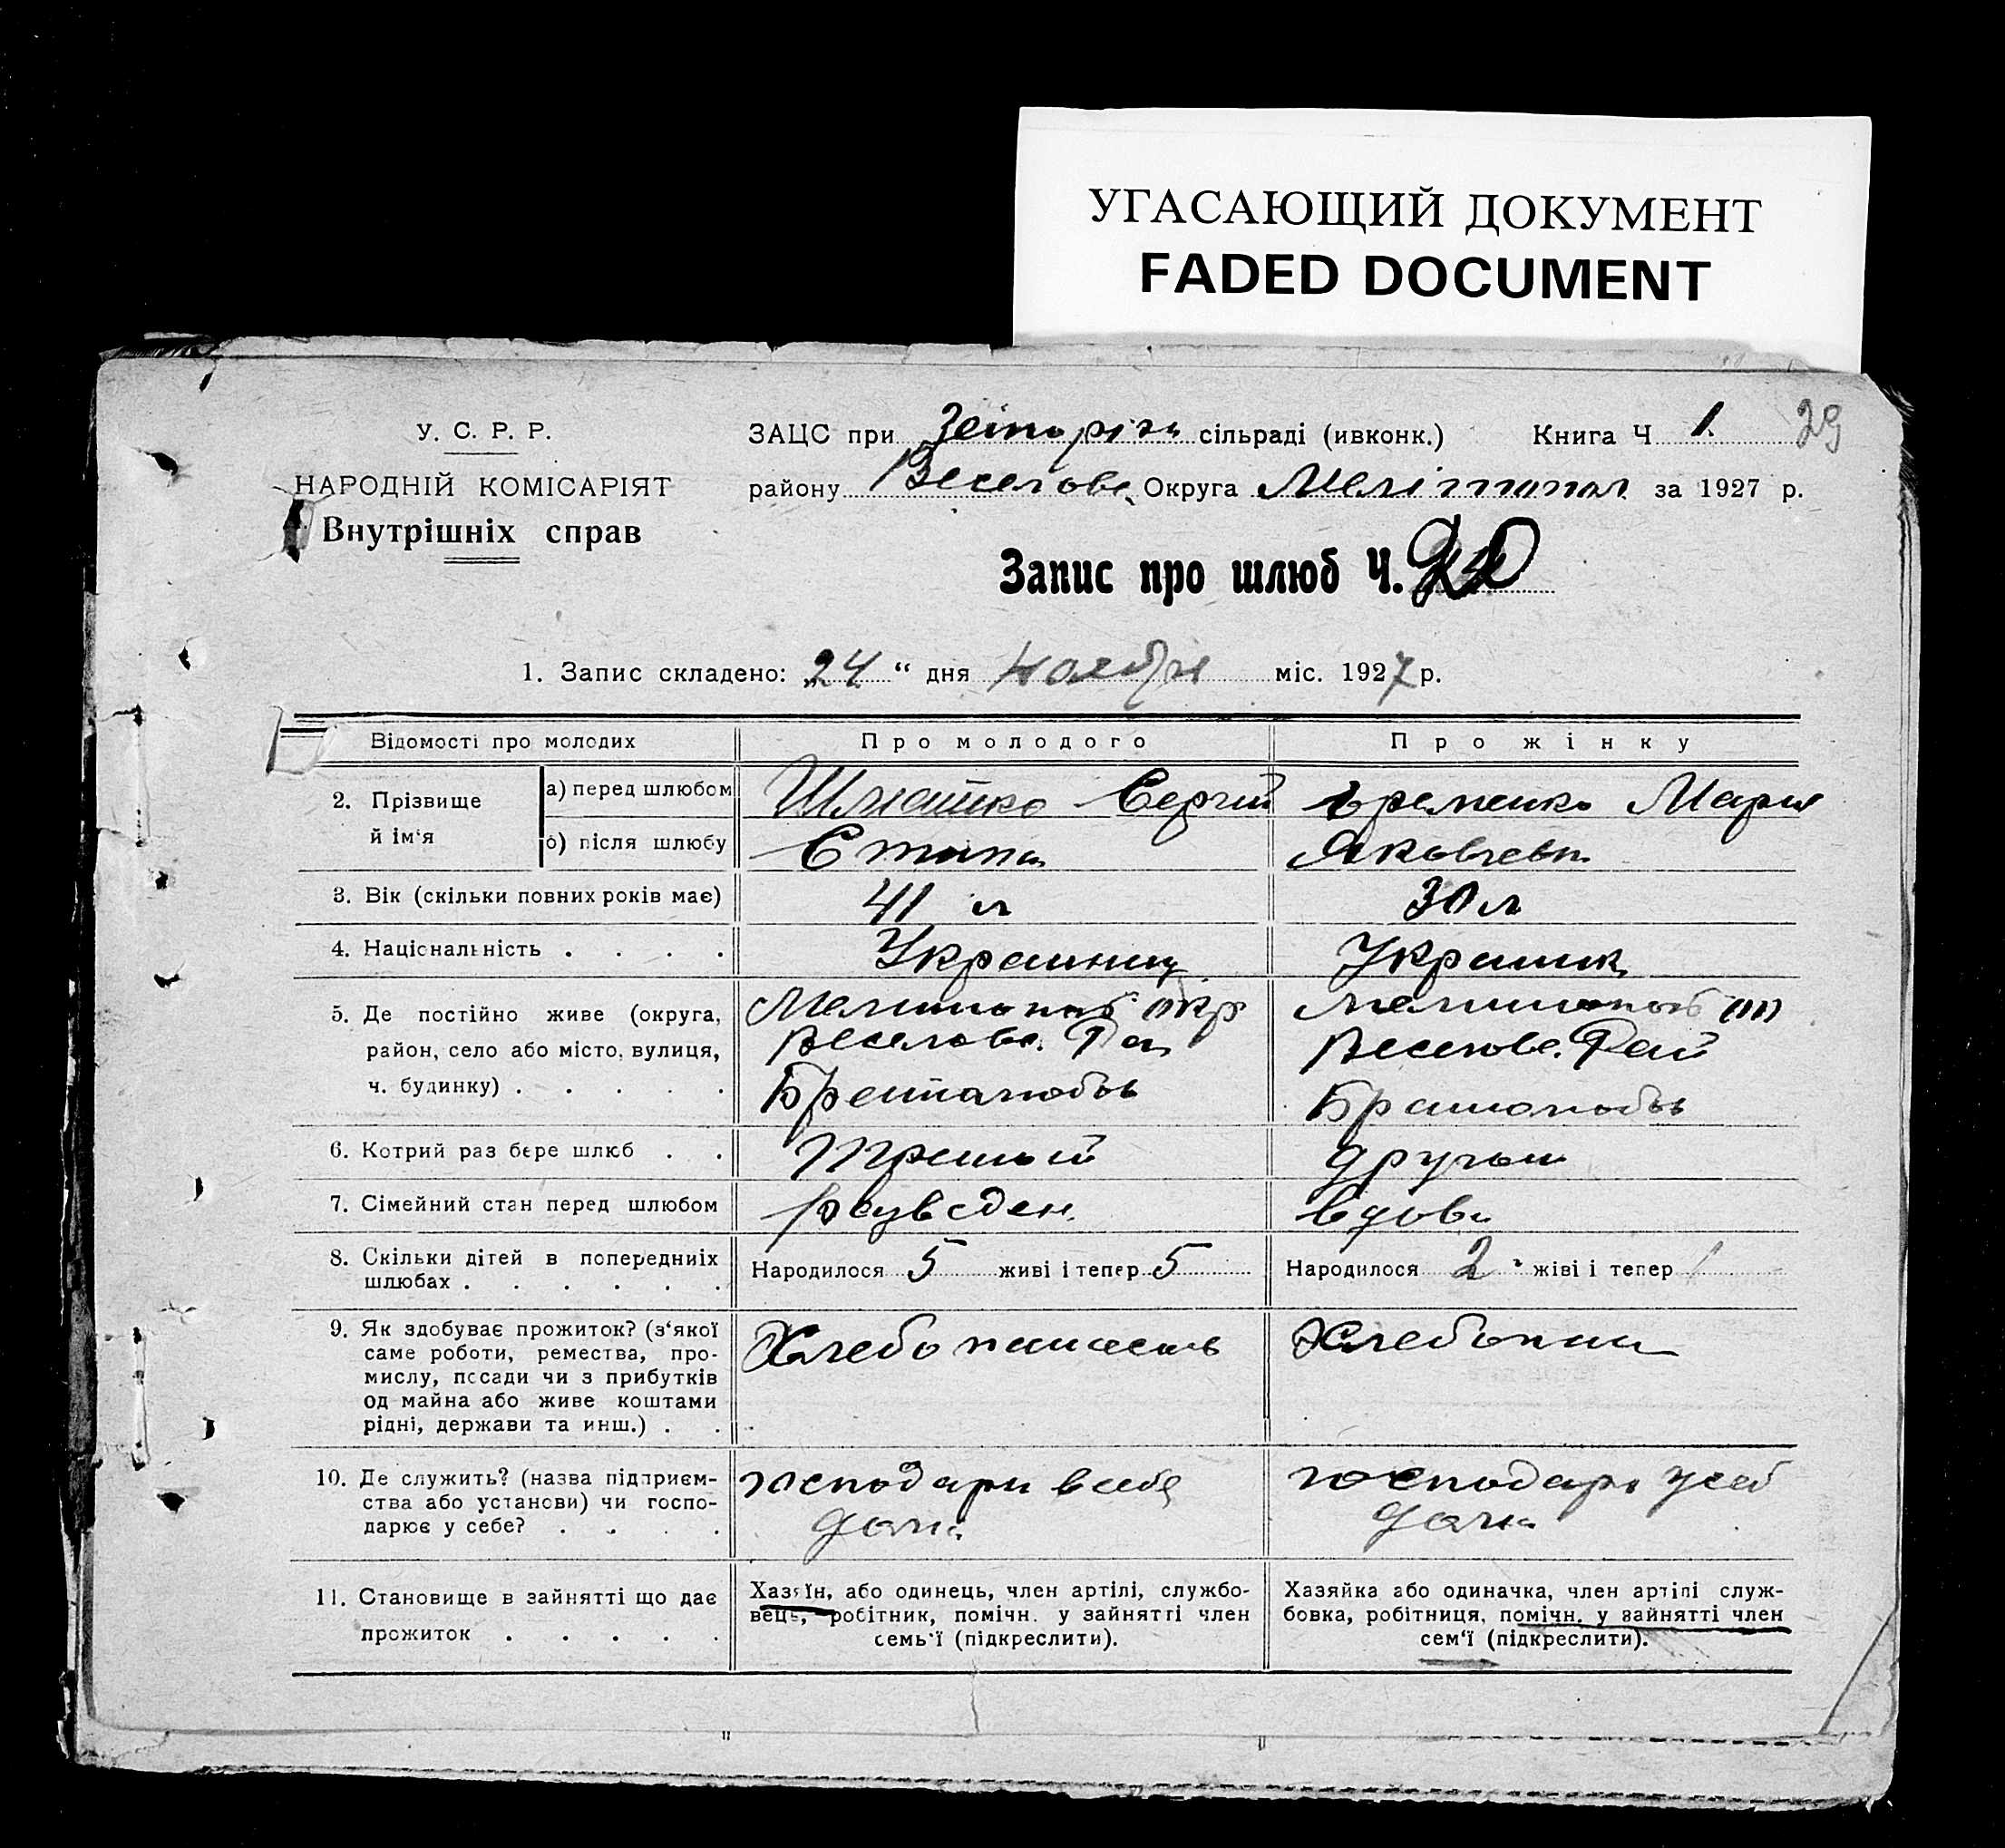 УГАСАЮЩИЙ ДОКУМЕНТ
FADED DOCUMENT
У. С. Р. Р.
НАРОДНІЙ КОМІСАРІЯТ
Внутрішніх справ
ЗАЦС при сільраді (ивконк.) Книга Ч 1. 29
району Веселовс Округа Мелітопол за 1927 р.
Запис про шлюб Ч.
1. Запис складено: „24 “ дня ноября міс. 1927 р.
Відомості про молодих
Про молодого
Про жінку
2. Прізвище й ім‘я
а) перед шлюбом
Сергій
Єременко Мария
б) після шлюбу
Яковлевн
3. Вік (скільки повних років має)
41 л
30 л
4. Національність . . . .
Украинец
Украинк
5. Де постійно живе (округа,
район, село або місто, вулиця,
ч. будинку) . . . . .
Мелитопол окр
Веселовс. Рай
Браталюбов
Мелитопол
Веселовс. Рай
Браталюбов
6. Котрий раз бере шлюб . .
Третьий
другой
7. Сімейний стан перед шлюбом
разведен
вдова
8. Скільки дітей в попередниіх
шлюбах . . . . . .
Народилося 5 живі і тепер 5
Народилося 2 жіві і тепер 1
9. Як здобуває прожиток? (з‘якої
саме роботи, ремества, про-
мислу, посади чи з прибутків
од майна або живе коштами
рідні, держави та инш.) . .
Хлебопашеств
Хлебопаш
10. Де служить? (назва підприєм-
ства або установи) чи госпо-
дарює у себе? . . . .
господарм в себе
дома
господарю у себ
дома
11. Становище в зайнятті що дає
прожиток . . . . .
Хазяїн, або одинець, член артілі, службо-
вець, робітник, помічн. у зайнятті член
семь‘ї (підкреслити).
Хазяйка або одиначка, член артілі служ-
бовка, робітниця, помічн. у зайнятті член
сем‘ї (підкреслити).